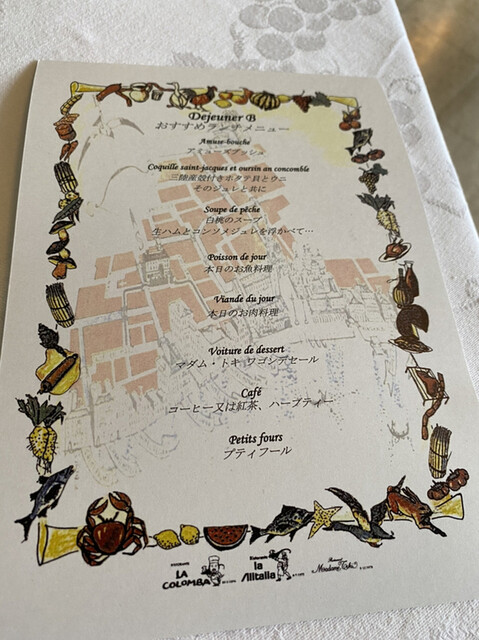 Dejeuner B
おすすめランチメニュー
Amuse-bouche
アミューズブッシュ
Coquille saint-jacques et oursin au concomble
三陸産殻付きホタテ貝とウニ
そのジュレと共に
Soupe de pêche
白桃のスープ
生ハムとコンソメジュレを浮かべて…
Poisson de jour
本日のお魚料理
Viande du jour
本日のお肉料理
Voiture de dessert
マダム・トキ ワゴンデセール
Café
コーヒー又は紅茶、ハーブティー
Petits fours
プティフール
LA COLOMBA
la Alitalia
Madame Toki